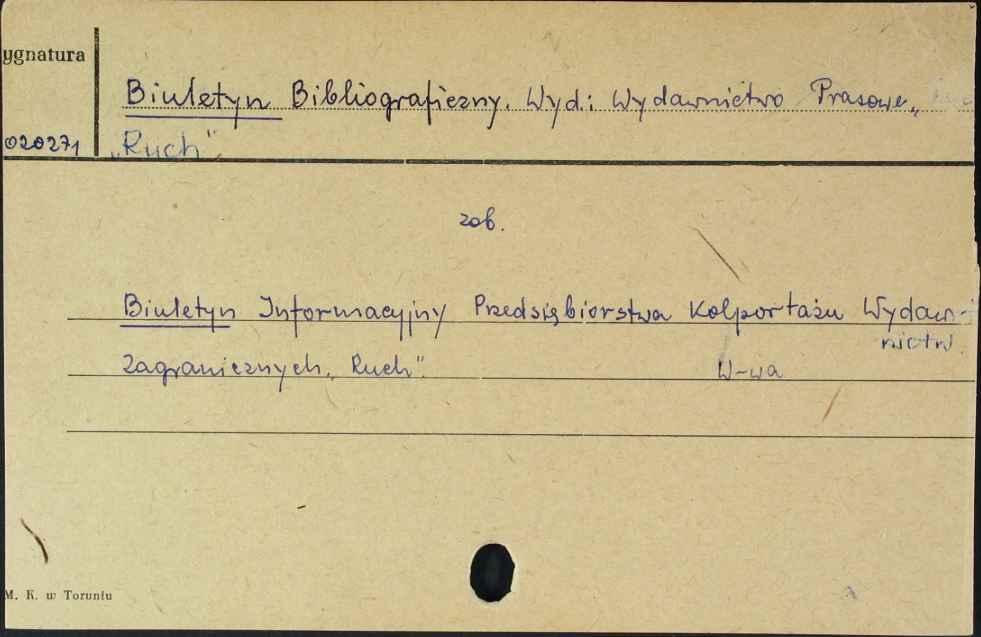 ygnatura
Biuletyn Bibliograficzny. Wyd.: Wydawnictwo Prasowe„
020271 „Ruch".
zob.
Biuletyn Informacyjny Przedsiębiorstwa Kolportażu Wydaw-
nictw
Zagranicznych„ Ruch". W-wa
M. K. w Toruniu